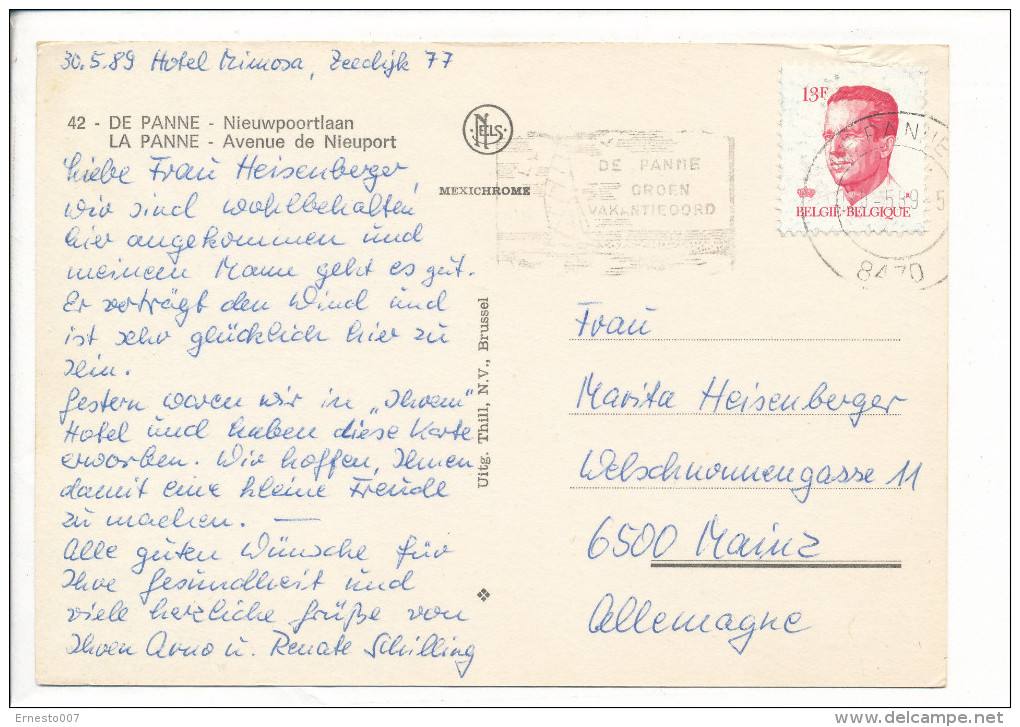 30.5.89 Hotel Mimosa, Zeedijk 77
42 - DE PANNE - Nieuwpoortlaan
LA PANNE - Avenue de Nieuport
NELS
MEXICHROME
Liebe Frau Heisenberger,
wir sind wohlbehalten
hier angekommen und
meinem Mann geht es gut.
Er verträgt den Wind und
ist sehr glücklich hier zu
sein.
Gestern waren wir in „Ihrem“
Hotel und haben diese Karte
erworben. Wir hoffen, Ihnen
damit eine kleine Freude
zu machen. —
Alle guten Wünsche für
Ihre Gesundheit und
viele herzliche Grüße von
Ihren Arno u. Renate Schilling
Uitg. Thill, N.V., Brussel
DE PANNE
GROEN
VAKANTIEOORD
13F
BELGIË-BELGIQUE
PANNE
8470
Frau
Marita Heisenberger
Welschnonnengasse 11
6500 Mainz
Allemagne
Ernesto007
delcampe.net